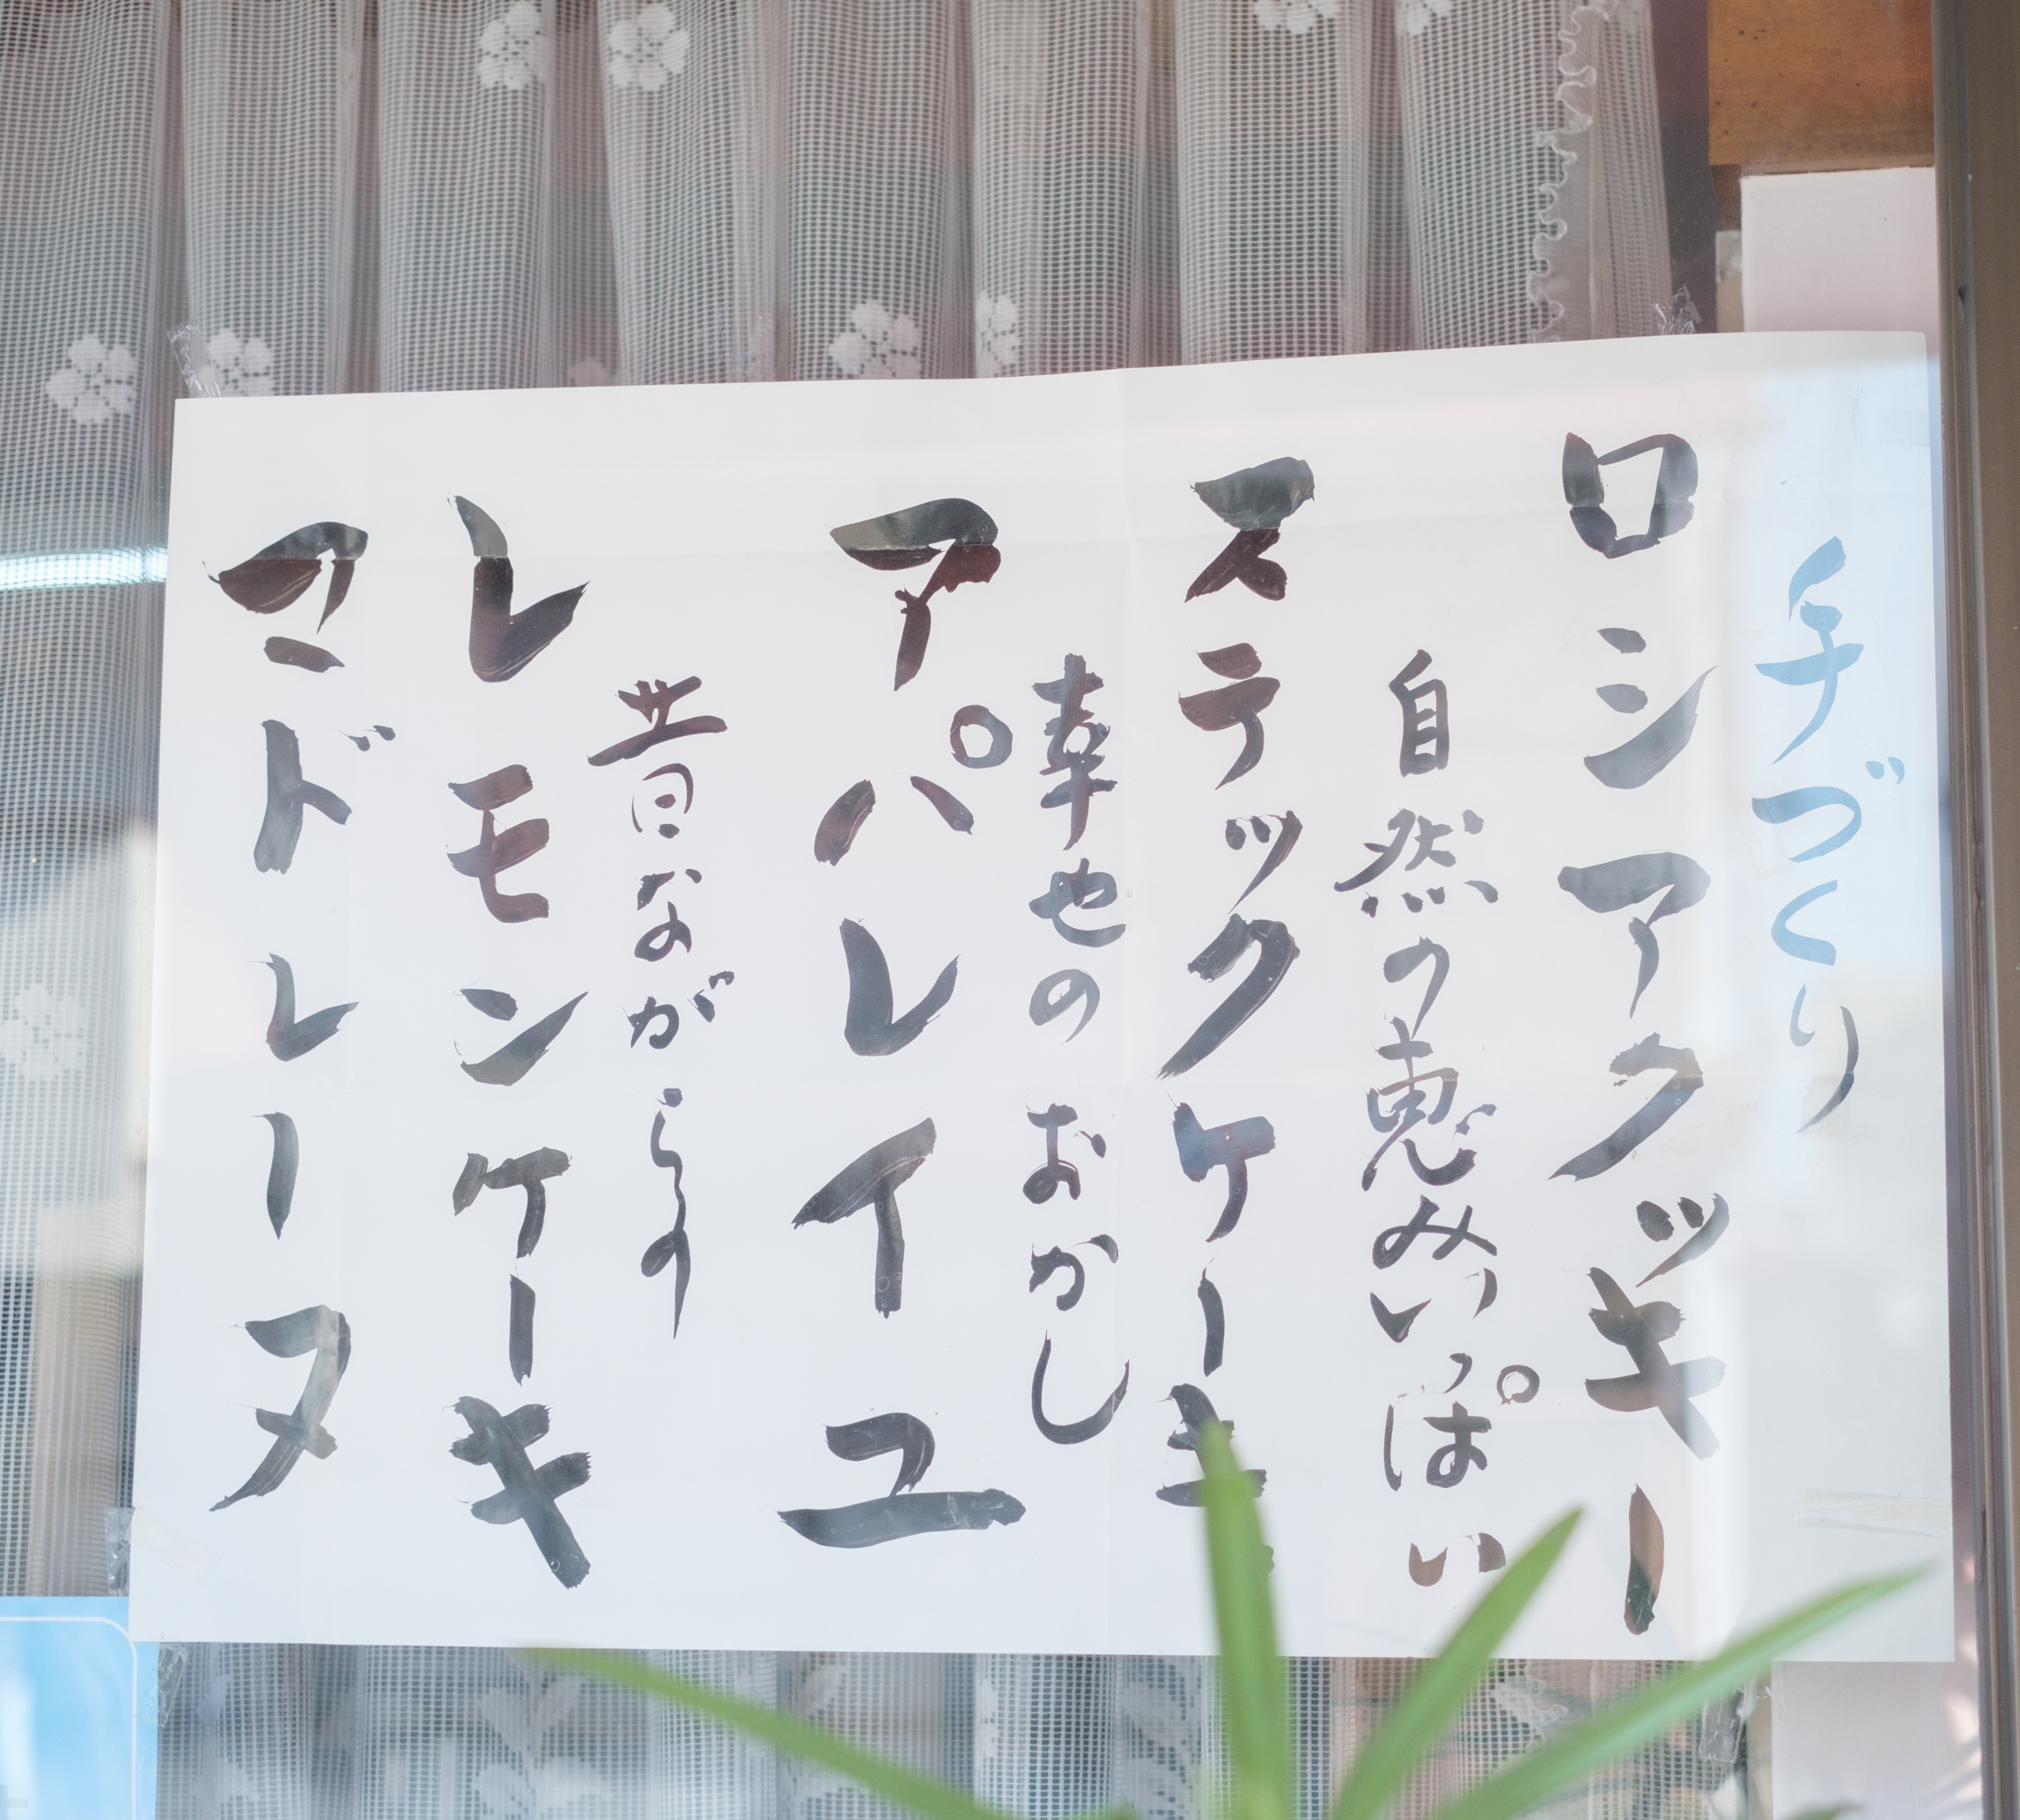 手づくり
ロシアクッキー
自然の恵みいっぱい
ステックケーキ
幸せのおかし
アパレイユ
昔ながらの
レモンケーキ
マドレーヌ